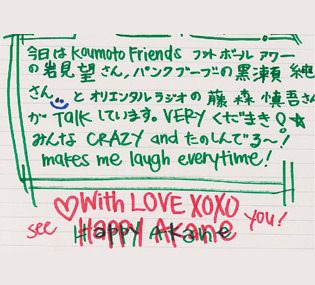 今日は Kaumoto Friends フットボールアワー
の岩見望さん,パンクブーブの黒瀬純
さん と オリエンタルラジオの藤森慎吾さん
が Talk しています。VERY くだまき!☆
みんな CRAZY and たのしんでる〜!
makes me laugh everytime!
♡With LOVE XOXO
see Happy Akane you!